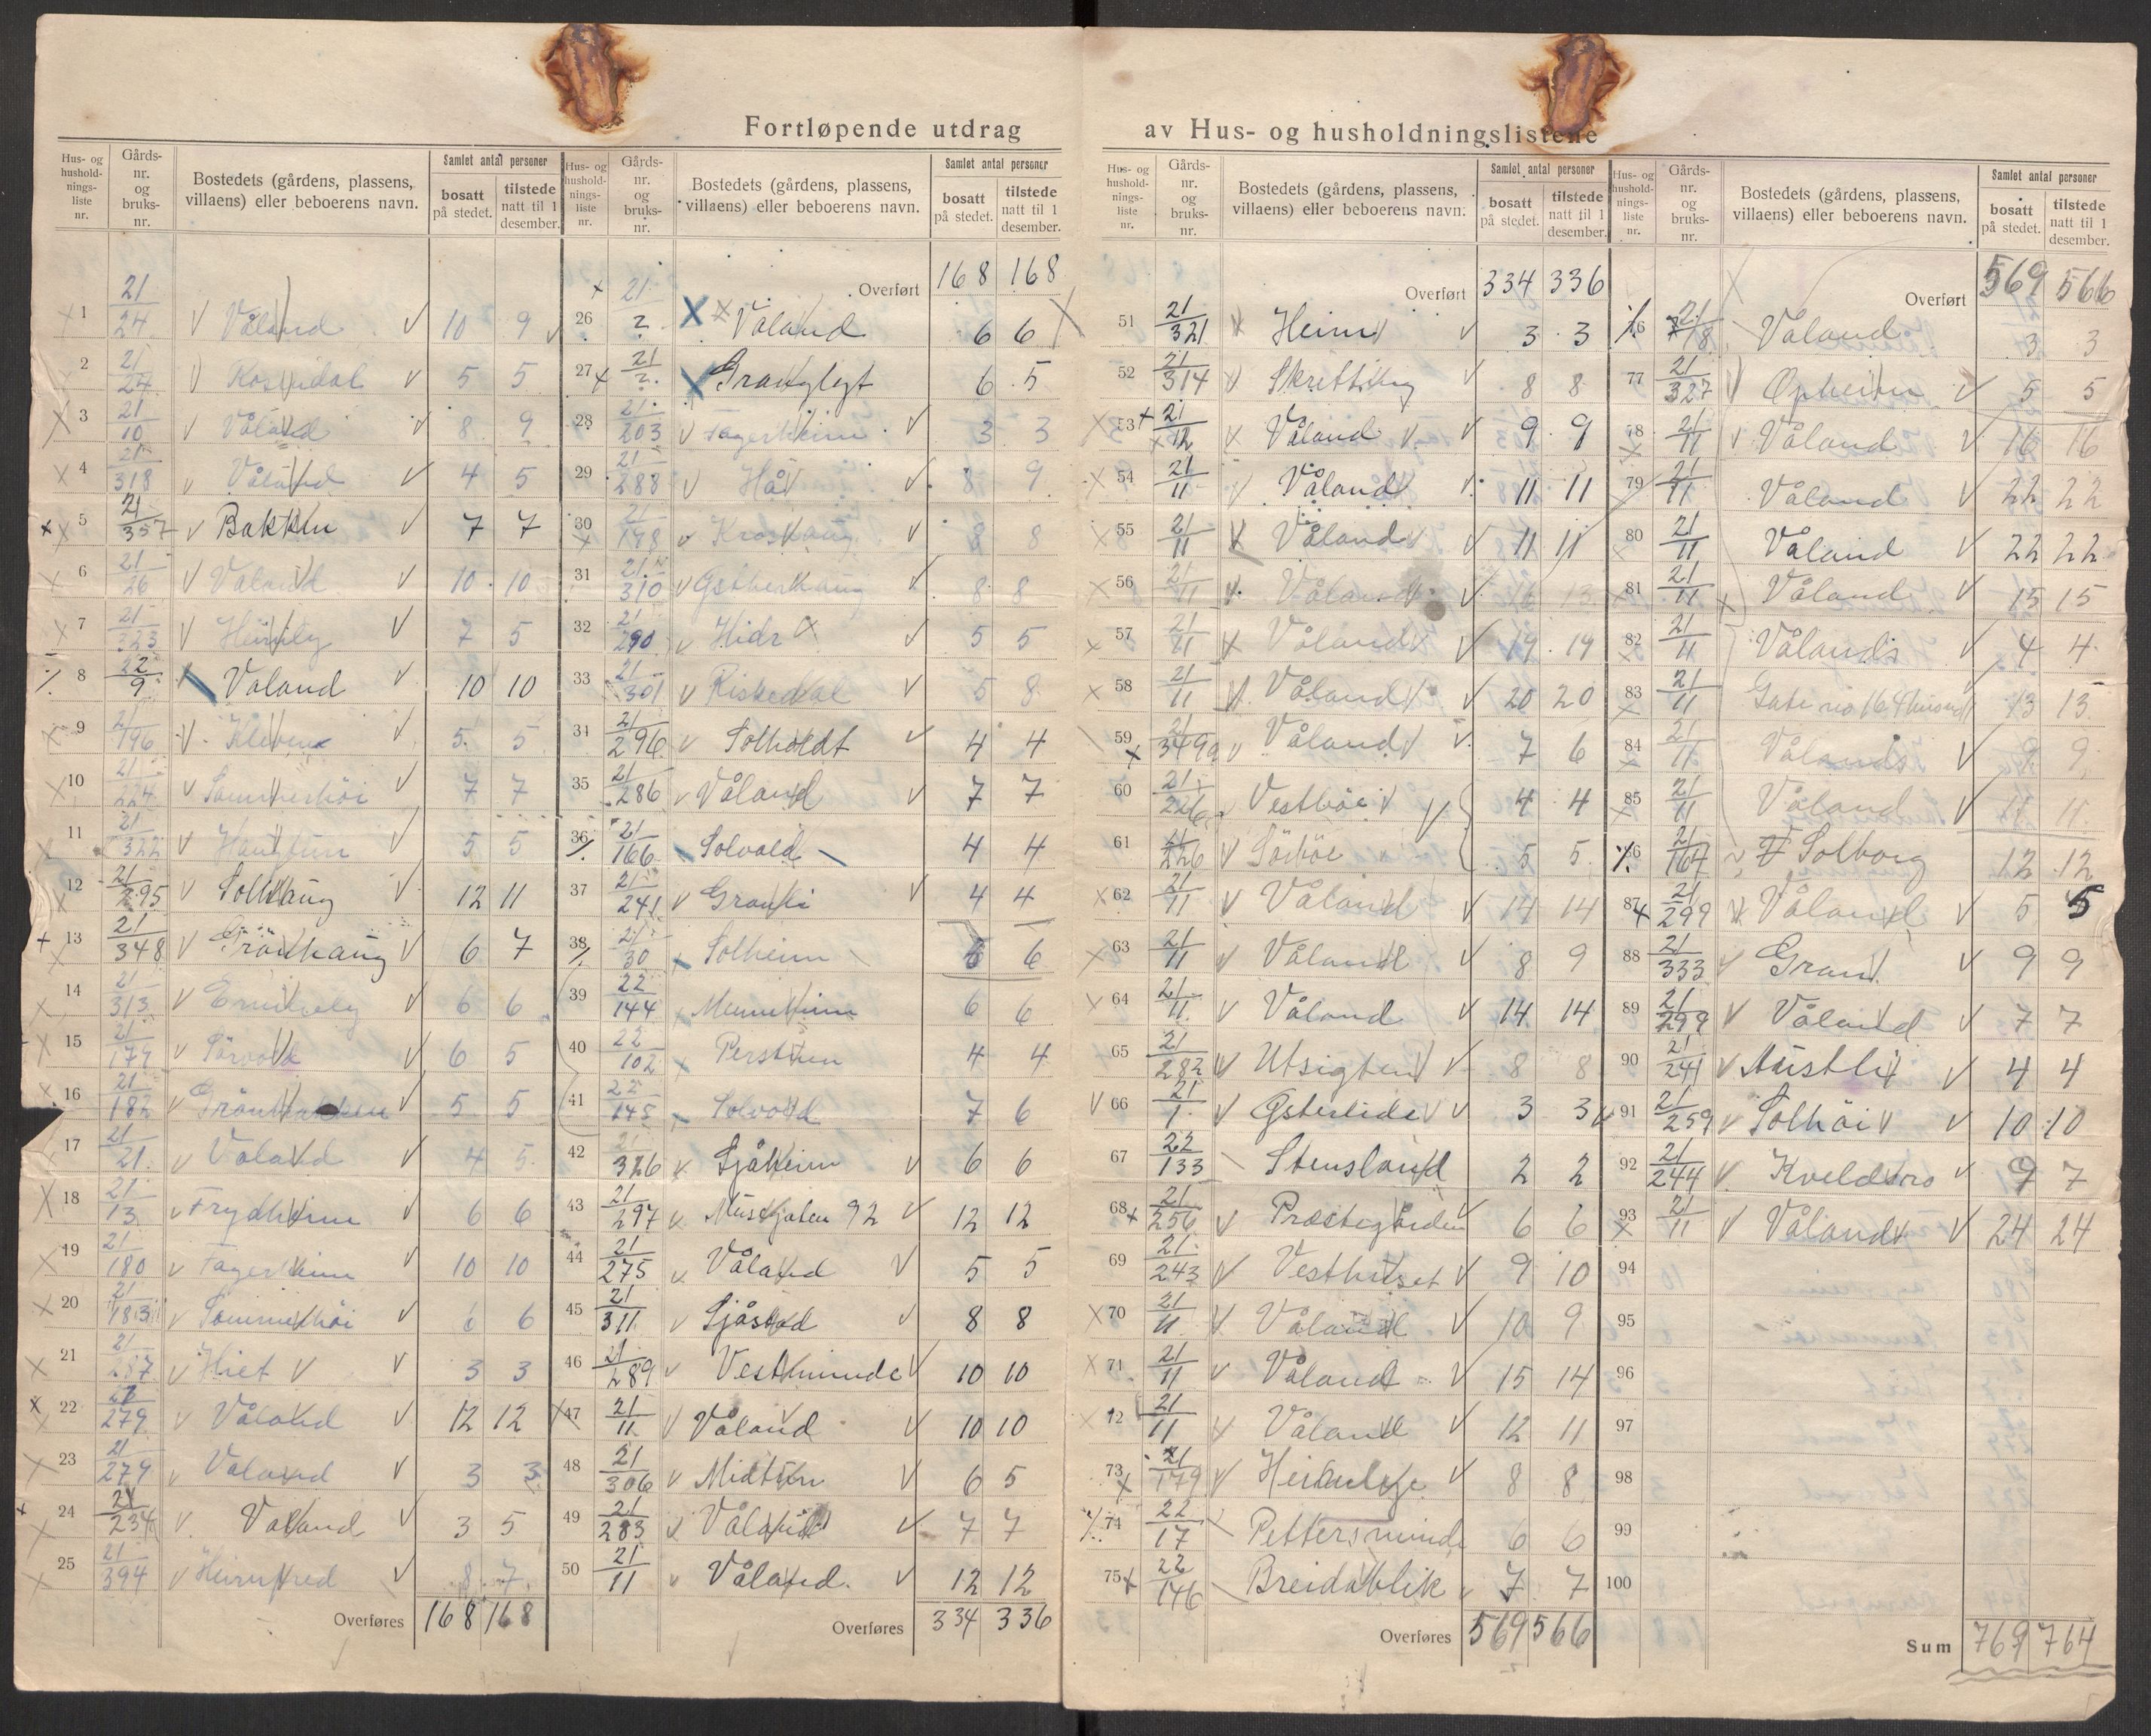 Fortløpende utdrag av Hus- og husholdningslistene
Hus- og husholdningsliste nr.
Gårdsnr. og bruksnr.
Bostedets (gårdens, plassens, villaens) eller beboerens navn.
Samlet antal personer
bosatt på stedet.
tilstede natt til 1 desember.
1 21/24 Våland 10 9
2 21/24 Rosendal 5 5
3 21/10 Våland 8 9
4 21/318 Våland 4 5
5 21/357 Bakken 7 7
6 21/26 Våland 10 10
7 21/323 Heimly 7 5
8 22/9 Våland 10 10
9 21/196 5 5
10 21/224 Sommerhöi 7 7
11 21/322 Haugtun 5 5
12 21/295 Solhaug 12 11
13 21/348 Grönhaug 6 7
14 21/313 6 6
15 21/179 6 5
16 21/182 5 5
17 21/21 Våland 4 5
18 21/13 Frydheim 6 6
19 21/180 Fagerheim 10 10
20 21/183 Sommerhöi 6 6
21 21/287 3 3
22 21/279 Våland 12 12
23 21/279 Våland 3 3
24 21/234 Våland 3 5
25 21/394 Heimfred 8 7
Overføres 168 168
Hus- og husholdningsliste nr.
Gårdsnr. og bruksnr.
Bostedets (gårdens, plassens, villaens) eller beboerens navn.
Samlet antal personer
bosatt på stedet.
tilstede natt til 1 desember.
Overført 168 168
26 21/? Våland 6 6
27 21/? 6 5
28 21/203 Fagerheim 3 3
29 21/288 8 9
30 21/198 Kroshaug 8 8
31 21/310 8 8
32 21/290 5 5
33 21/301 Riskedal 5 8
34 21/296 Solholdt 4 4
35 21/286 Våland 7 7
36 21/166 Solvold 4 4
37 21/241 Granli 4 4
38 21/30 Solheim 6 6
39 22/144 6 6
40 22/102 4 4
41 22/145 Solvold 7 6
42 21/326 Sjåheim 6 6
43 21/297 92 12 12
44 21/275 Våland 5 5
45 21/311 Sjåstad 8 8
46 21/289 Vestminde 10 10
47 21/11 Våland 10 10
48 21/306 Midtun 6 5
49 21/283 Våland 7 7
50 21/11 Våland 12 12
Overføres 334 336
Hus- og husholdningsliste nr.
Gårdsnr. og bruksnr.
Bostedets (gårdens, plassens, villaens) eller beboerens navn.
Samlet antal personer
bosatt på stedet.
tilstede natt til 1 desember.
Overført 334 336
51 21/321 Heim 3 3
52 21/314 8 8
53 21/12 Våland 9 9
54 21/11 Våland 11 11
55 21/11 Våland 11 11
56 21/11 Våland 16 13
57 21/11 Våland 19 19
58 21/11 Våland 20 20
59 21/349 Våland 7 6
60 21/226 Vesthöi 4 4
61 21/226 5 5
62 21/11 Våland 14 14
63 21/11 Våland 8 9
64 21/11 Våland 14 14
65 21/282 Utsigten 8 8
66 21/1 Østerlide 3 3
67 22/133 Stensland 2 2
68 21/256 Præstegården 6 6
69 21/243 Vesthuset 9 10
70 21/11 Våland 10 9
71 21/11 Våland 15 14
72 21/11 Våland 12 11
73 21/179 8 8
74 22/17 Pettersminde 6 6
75 22/146 Breidablik 7 7
Overføres 569 566
Hus- og husholdningsliste nr.
Gårdsnr. og bruksnr.
Bostedets (gårdens, plassens, villaens) eller beboerens navn.
Samlet antal personer
bosatt på stedet.
tilstede natt til 1 desember.
Overført 569 566
76 21/18 Våland 3 3
77 21/327 Opheim 5 5
78 21/11 Våland 16 16
79 21/11 Våland 22 22
80 21/11 Våland 22 22
81 21/11 Våland 15 15
82 21/11 Vålands 4 4
83 21/11 13 13
84 21/11 Vålands 9 9
85 21/11 Våland 11 11
86 21/167 Solborg 12 12
87 21/299 Våland 5 5
88 21/333 Gran 9 9
89 21/299 Våland 7 7
90 21/241 Austli 4 4
91 21/259 Solhöi 10 10
92 21/244 Kveldsro 9 7
93 21/11 Våland 24 24
94
95
96
97
98
99
100
Sum 769 764